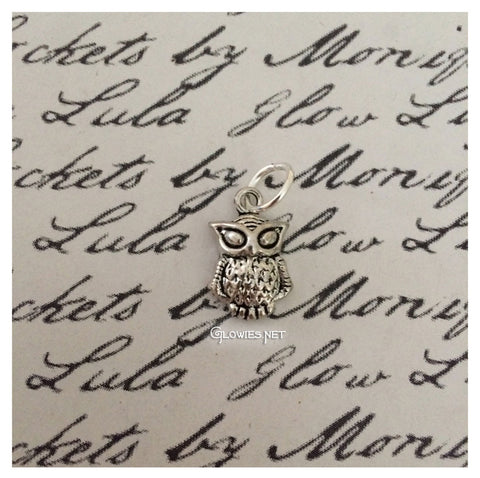 ockets by Moniq
Lula Glow L
ckets by Moniq
Lula Glow Lu
ckets by Moniq
GLOWIES.NET
Lula Glow L
ckets by Moni